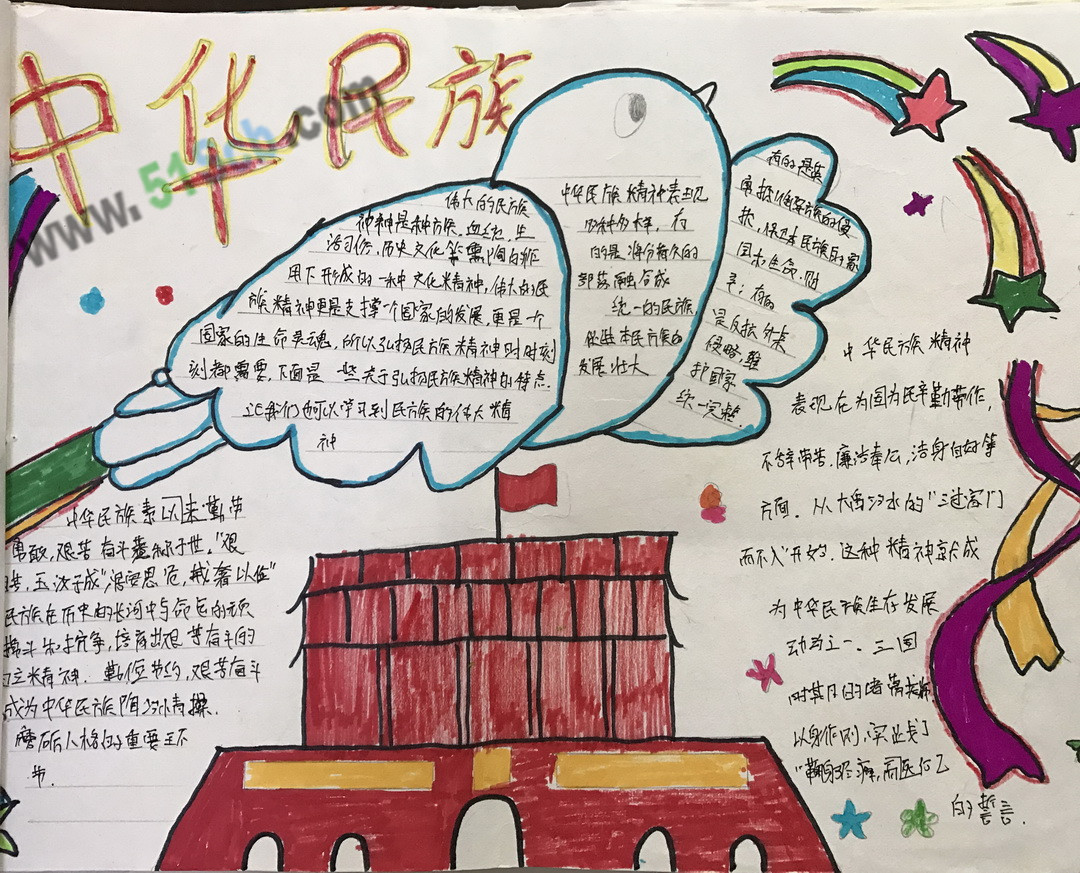 中华民族
伟大的民族
神精是种族、血统、生
活习俗、历史文化等
用下形成的一种文化精神,伟大的民
族精神更是支撑一个国家的发展,更是一个
国家的生命灵魂,所以弘扬民族精神时时刻
刻都需要,下面是一些关于弘扬民族精神的特点.
让我们也可以学习到民族的伟大精
神
中华民族精神表现
多种多样,有
的是将分散的
部落融合成
统一的民族,
促进本民族的
发展壮大
有的是英
勇抵御
抗,保卫本民族的
国与生命、财
产;有的
是反抗外来
侵略,维
护国家
统一完整.
中华民族素以勤劳
勇敢,艰苦奋斗著称于世,"艰
苦,玉汝于成""居安思危,戒奢以俭"
民族在历史的长河中与命运的顽
搏斗和抗争,培育出艰苦奋斗的
精神.勤俭节约,艰苦奋斗
成为中华民族陶冶情操.
磨砺人格的重要
步.
中华民族精神
表现在为国为民辛勤劳作,
不辞劳苦.廉洁奉公,洁身自好等
方面.从大禹治水的"三过家门
而不入"开始.这种精神就成
为中华民族生存发展
动力之一.三国
时其
以身作则,实践了
"鞠躬尽瘁,死而后已
的誓言.
www.51
.com